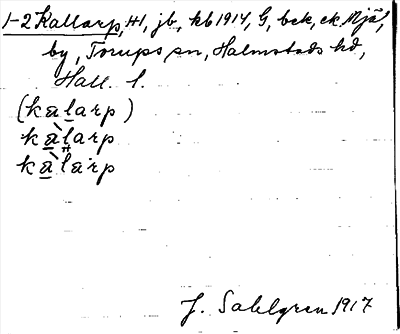 1-2 Kallarp, H1, jb, kb 1914, G, bek, ek Mjäl,
by, Torups sn, Halmstads hd,
Hall. l.
(kalarp)
kàlarp
kàlàrp
J. Sahlgren 1917